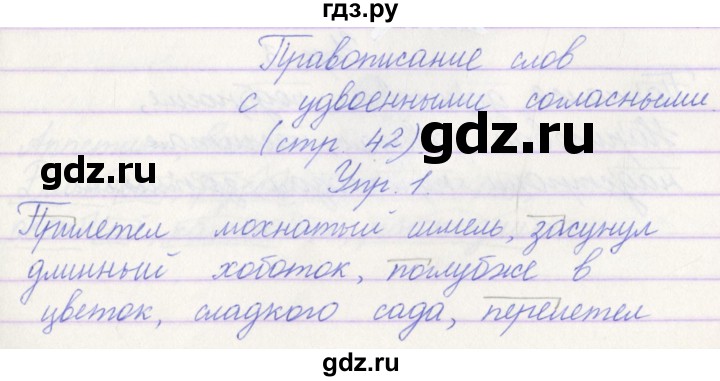 гдз.ру
Правописание слов
с удвоенными согласными.
(стр. 42)
gdz.ru
gdz.ru
Упр. 1.
Прилетел мохнатый шмель, засунул
длинный хоботок, поглубже в
цветок, сладкого сада, перелетел
gdz.ru